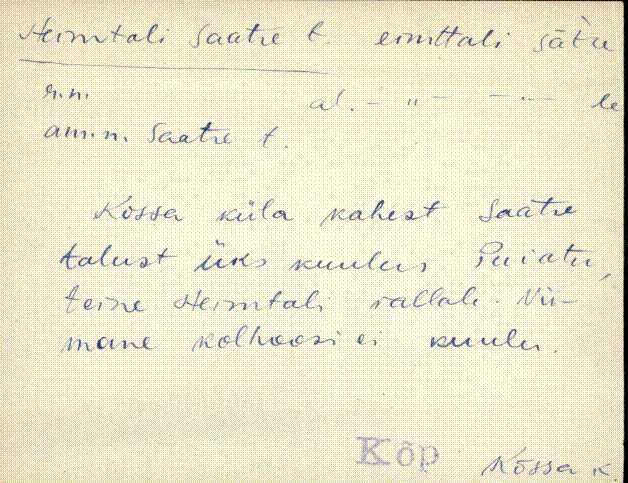 Heimtali Saatre t. eimttali sàtre
r.n. al. - " - - " - le
am.n. Saatre t.
Kõssa küla kahest Saatre
talust üks kuulus Puiatu,
teine Heimtali vallale. Vii-
mane kolhoosi ei kuulu.
Kõp Kõssa k.